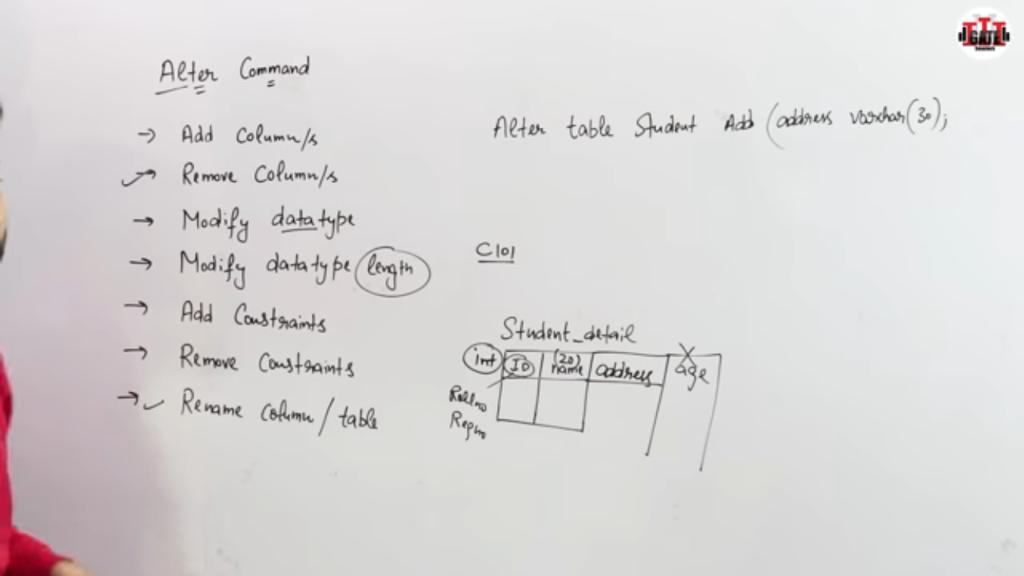 Alter Command
→ Add Column/s
→ Remove Column/s
→ Modify datatype
→ Modify datatype length
→ Add Constraints
→ Remove Constraints
→ Rename Column / table
Alter table Student Add (address varchar(30);
C101
Student_detail
int ID (20) name address X age
Rollno
Regno
GATE